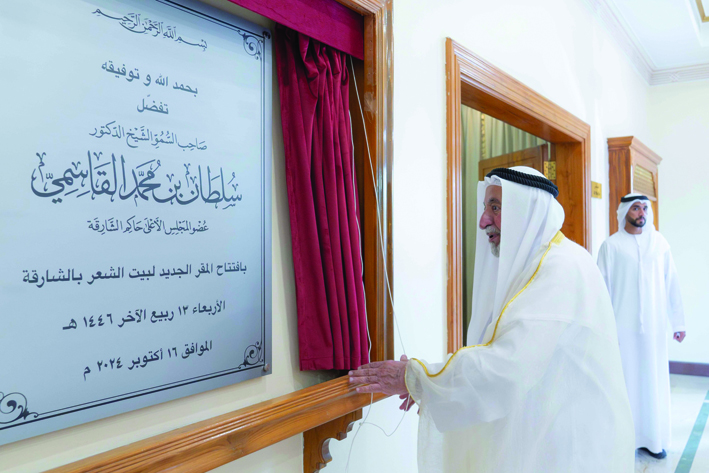 بسم الله الرحمن الرحيم
بحمد الله و توفيقه
تفضّل
صاحب السُّموِّ الشَّيخ الدكتور
سُلطان بن محمّد القاسميّ
عضو المجلس الأعلى حاكم الشارقة
بافتتاح المقر الجديد لبيت الشعر بالشارقة
الأربعاء ١٣ ربيع الآخر ١٤٤٦ هـ
الموافق ١٦ أكتوبر ٢٠٢٤ م